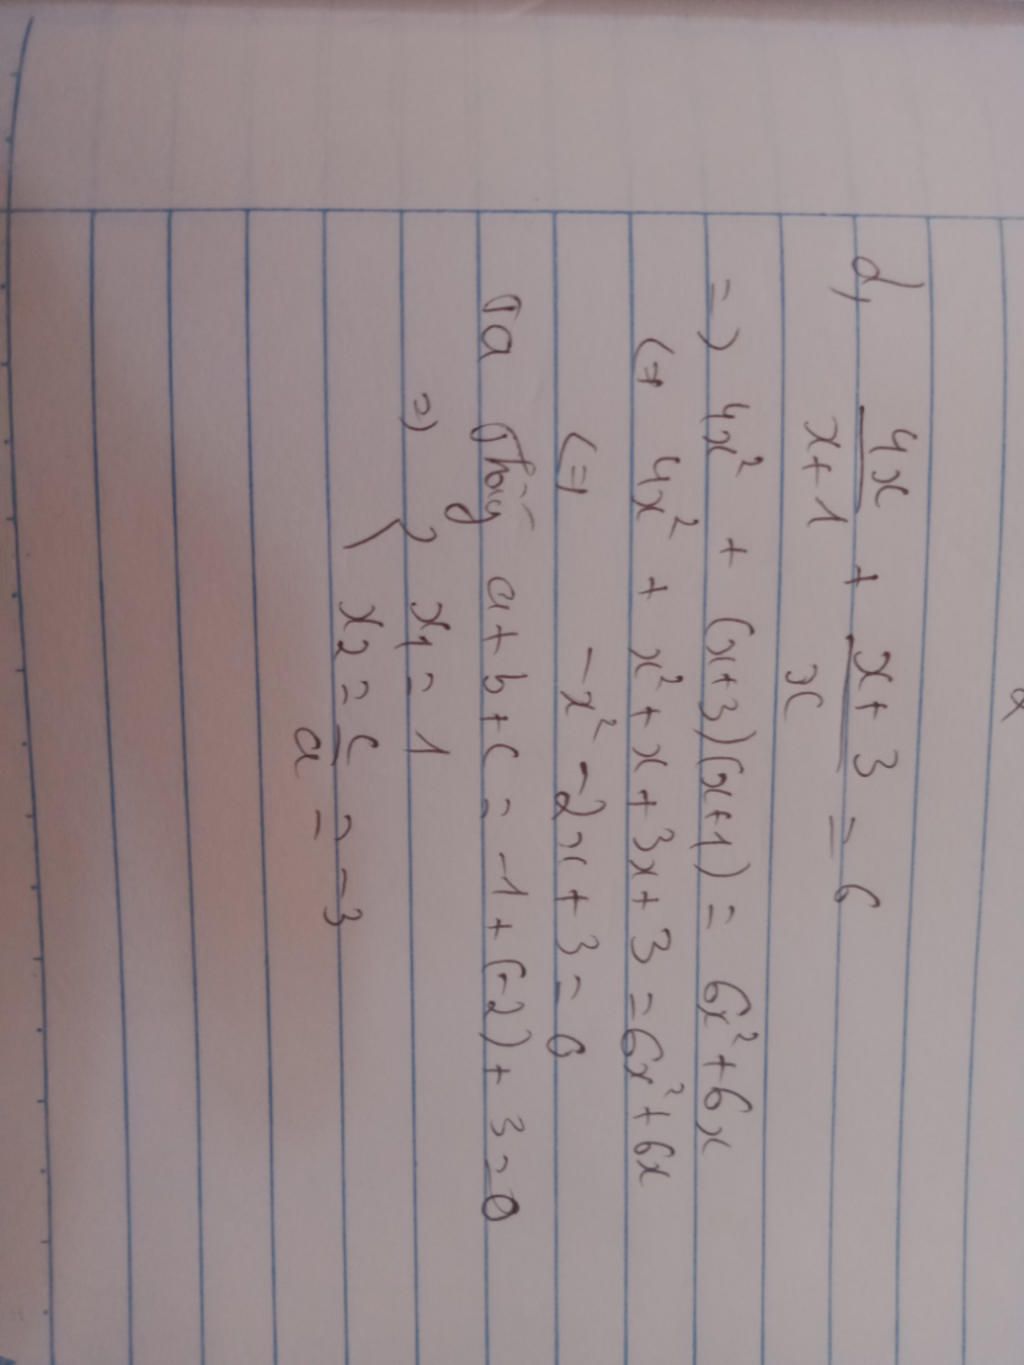 d, 4x/x+1 + x+3/x = 6
=) 4x² + (x+3)(x+1) = 6x²+6x
(=) 4x² + x² + x + 3x + 3 = 6x² + 6x
(=) -x² - 2x + 3 = 0
Ta Thấy a + b + c = -1 + (-2) + 3 = 0
=) { x₁ = 1
x₂ = c/a = -3